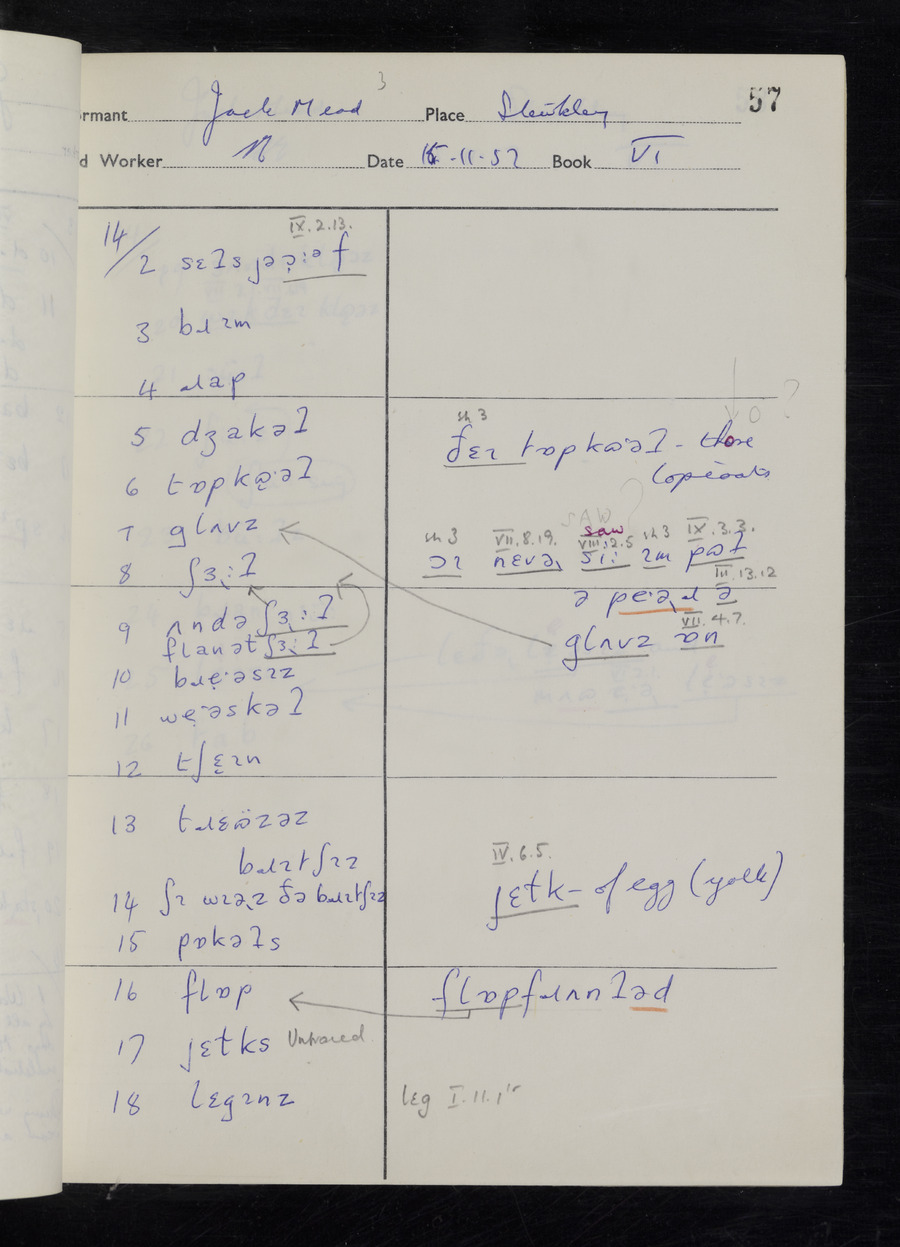 57
3
rmant Jack Mead Place Stewkley
d Worker Date 15-11-52 Book VI
IX.2.13.
14/2
3 bɹɪm
4 ɹap
5 dʒakəɫ
6 tɒpkɒ̜̈əɫ
7 glʌvz
8 ʃɜ˞:ɫ
9 ʌndə ʃɜ˞:ɫ
flanət ʃɜ˞:ɫ
10 bɹẹ·əsɪz
11 wẹ·əskəɫ
12 tʃɛ̣ɪn
13 tɹɛɒ̈zəz
bɹɪtʃɪz
14 ʃɪ wɪə˞z ðə bɹɪtʃɪz
15 pɒkəɫs
16 flɒp
17 jɛtks Unhoared
18 lɛgɪnz
0 ?
sh 3
ðɛɪ tɒpkɒ̈əɫ - those
topcoats
SAW
saw
sh 3 VII.8.19. VIII.2.5 sh 3 IX.3.3.
ɔɪ nɛvə˞ sɪ: ɪm pɒɫ
III.13.12
ə pe·ə˞ɹ ə
VII.4.7.
glʌvz ɒn
IV.6.5.
jɛtk - of egg (yolk)
flɒpfɹʌnɫəd
leg I.11.1